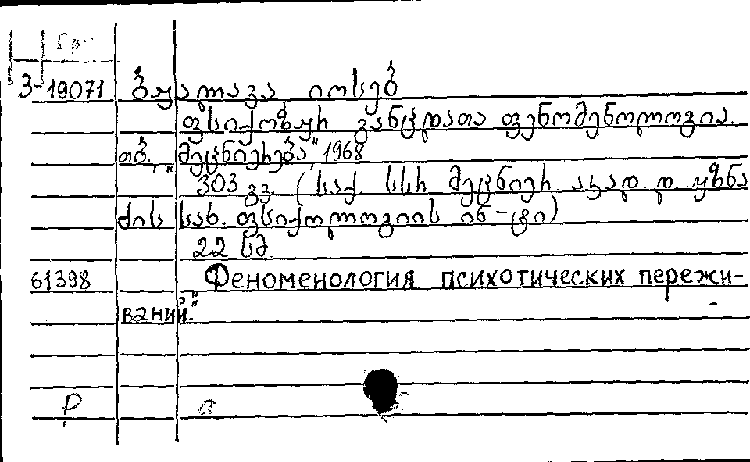 3-19071 ბჟალავა იოსებ
ფსიქოზურ განცდათა ფენომენოლოგია.
თბ., „მეცნიერება", 1968
303 გვ. (საქ სსრ მეცნიერ აკად დ უზნა
ძის სახ. ფსიქოლოგიის ინ-ტი)
22 სმ
61398 „Феноменология психотических пережи-
ваний."
P